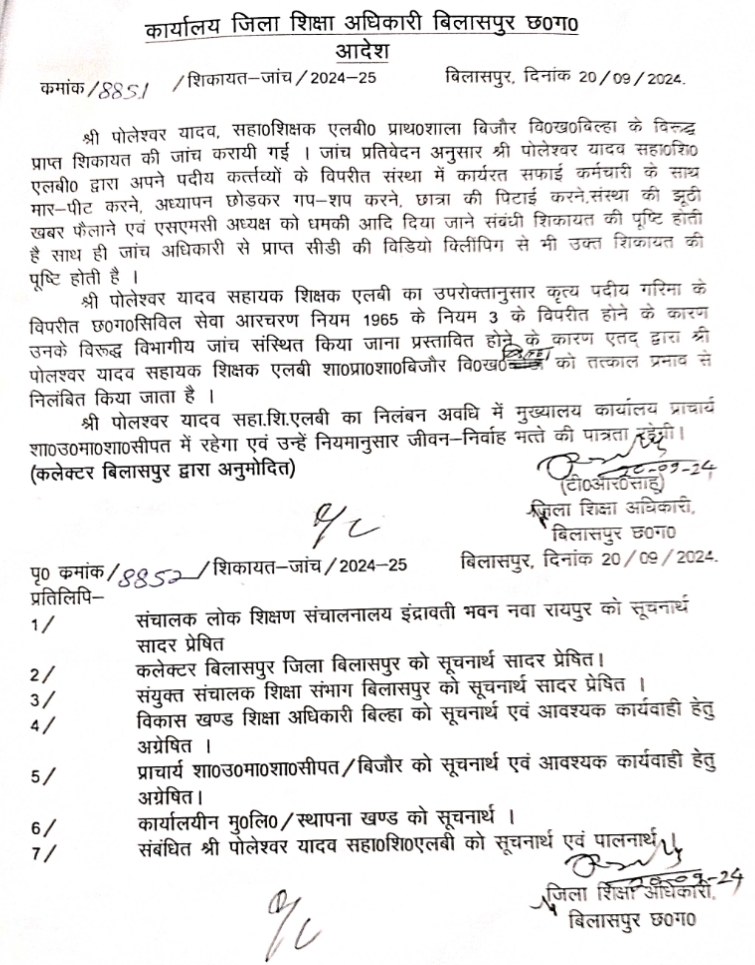 कार्यालय जिला शिक्षा अधिकारी बिलासपुर छ0ग0
आदेश
कमांक /8851 /शिकायत–जांच/2024–25 बिलासपुर, दिनांक 20/09/2024.
श्री पोलेश्वर यादव, सहा0शिक्षक एलबी0 प्राथ0शाला बिजौर वि0ख0बिल्हा के विरूद्ध
प्राप्त शिकायत की जांच करायी गई । जांच प्रतिवेदन अनुसार श्री पोलेश्वर यादव सहा0शि0
एलबी0 द्वारा अपने पदीय कर्त्तव्यों के विपरीत संस्था में कार्यरत सफाई कर्मचारी के साथ
मार–पीट करने, अध्यापन छोडकर गप–शप करने, छात्रा की पिटाई करने,संस्था की झूठी
खबर फैलाने एवं एसएमसी अध्यक्ष को धमकी आदि दिया जाने संबंधी शिकायत की पृष्टि होती
है साथ ही जांच अधिकारी से प्राप्त सीडी की विडियो क्लिंपिग से भी उक्त शिकायत की
पृष्टि होती है ।
श्री पोलेश्वर यादव सहायक शिक्षक एलबी का उपरोक्तानुसार कृत्य पदीय गरिमा के
विपरीत छ0ग0सिविल सेवा आरचरण नियम 1965 के नियम 3 के विपरीत होने के कारण
उनके विरूद्ध विभागीय जांच संस्थित किया जाना प्रस्तावित होने के कारण एतद् द्वारा श्री
पोलश्वर यादव सहायक शिक्षक एलबी शा0प्रा0शा0बिजौर वि0ख0 को तत्काल प्रभाव से
निलंबित किया जाता है ।
श्री पोलश्वर यादव सहा.शि.एलबी का निलंबन अवधि में मुख्यालय कार्यालय प्राचार्य
शा0उ0मा0शा0सीपत में रहेगा एवं उन्हें नियमानुसार जीवन–निर्वाह भत्ते की पात्रता रहेगी।
(कलेक्टर बिलासपुर द्वारा अनुमोदित)
20-09-24
(टी0आर0साहू)
जिला शिक्षा अधिकारी,
बिलासपुर छ0ग0
पृ0 कमांक/8852/शिकायत–जांच/2024–25 बिलासपुर, दिनांक 20/09/2024.
प्रतिलिपि–
1/ संचालक लोक शिक्षण संचालनालय इंद्रावती भवन नवा रायपुर को सूचनार्थ
सादर प्रेषित
2/ कलेक्टर बिलासपुर जिला बिलासपुर को सूचनार्थ सादर प्रेषित।
3/ संयुक्त संचालक शिक्षा संभाग बिलासपुर को सूचनार्थ सादर प्रेषित ।
4/ विकास खण्ड शिक्षा अधिकारी बिल्हा को सूचनार्थ एवं आवश्यक कार्यवाही हेतु
अग्रेषित ।
5/ प्राचार्य शा0उ0मा0शा0सीपत/बिजौर को सूचनार्थ एवं आवश्यक कार्यवाही हेतु
अग्रेषित।
6/ कार्यालयीन मु0लि0/स्थापना खण्ड को सूचनार्थ ।
7/ संबंधित श्री पोलेश्वर यादव सहा0शि0एलबी को सूचनार्थ एवं पालनार्थ।
20-09-24
जिला शिक्षा अधिकारी,
बिलासपुर छ0ग0